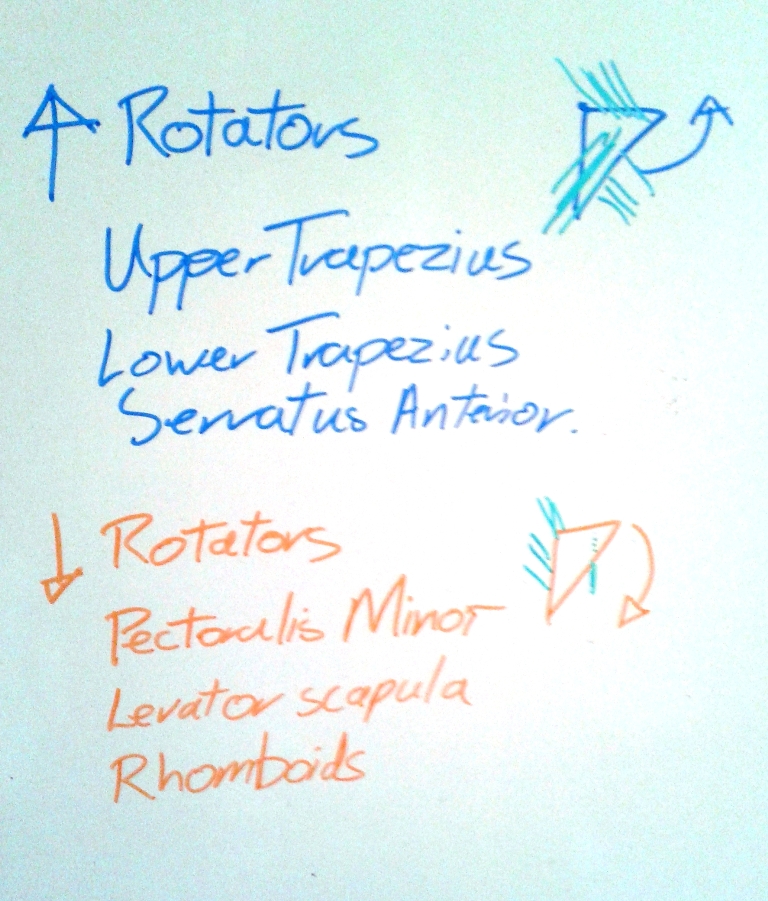 ↑ Rotators
Upper Trapezius
Lower Trapezius
Serratus Anterior.
↓ Rotators
Pectoralis Minor
Levator scapula
Rhomboids